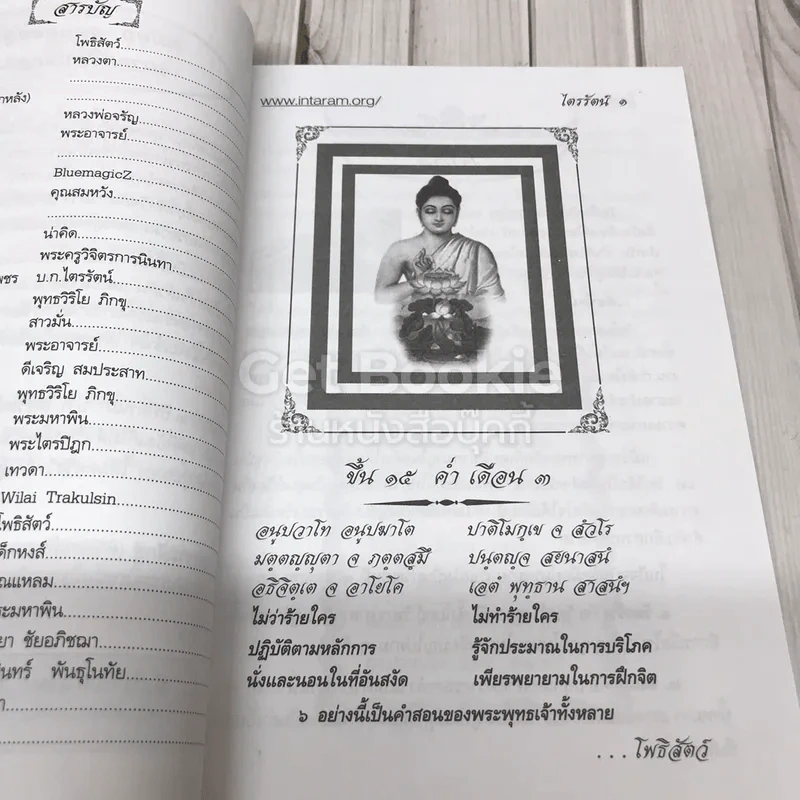 สารบัญ
โพธิสัตว์
หลวงตา
หลวงพ่อจรัญ
พระอาจารย์
BluemagicZ
คุณสมหวัง
น่าคิด
พระครูวิจิตรการนินทา
บ.ก.ไตรรัตน์
พุทธวิริโย ภิกขุ
สาวมั่น
พระอาจารย์
ดีเจริญ สมประสาท
พุทธวิริโย ภิกขุ
พระมหาพิน
พระไตรปิฎก
เทวดา
Wilai Trakulsin
โพธิสัตว์
ชัยอภิชฌา
พันธุโนทัย
www.intaram.org/ ไตรรัตน์ ๑
Get Bookie
ร้านหนังสือบุ๊คกี้
ขึ้น ๑๕ ค่ำ เดือน ๓
อนูปวาโท อนูปฆาโต ปาติโมกฺเข จ สํวโร
มตฺตญฺญุตา จ ภตฺตสฺมึ ปนฺตญฺจ สยนาสนํ
อธิจิตฺเต จ อาโยโค เอตํ พุทฺธาน สาสนํฯ
ไม่ว่าร้ายใคร ไม่ทำร้ายใคร
ปฏิบัติตามหลักการ รู้จักประมาณในการบริโภค
นั่งและนอนในที่อันสงัด เพียรพยายามในการฝึกจิต
๖ อย่างนี้เป็นคำสอนของพระพุทธเจ้าทั้งหลาย
...โพธิสัตว์